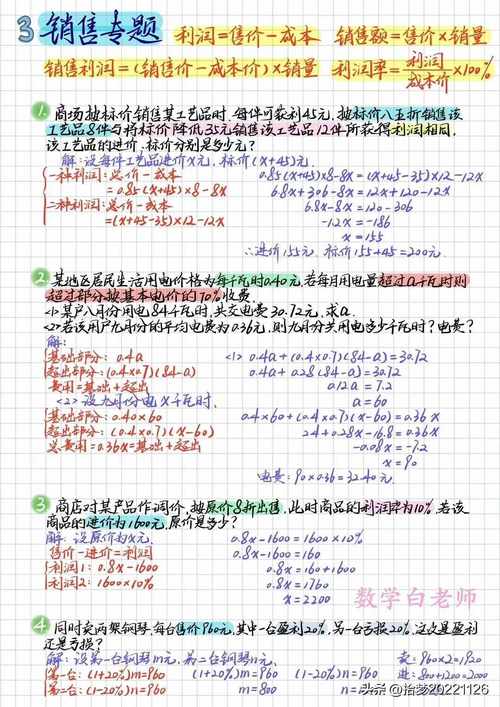 3 销售专题 利润=售价-成本 销售额=售价×销量
销售利润=(销售价-成本价)×销量 利润率=利润/成本价×100%
1. 商场按标价销售某工艺品时,每件可获利45元,按标价八五折销售该
工艺品8件与将标价降低35元销售该工艺品12件所获得利润相同,
该工艺品的进价,标价分别是多少元?
解:设每件工艺品进价x元,标价(x+45)元.
一种利润:总价-成本 0.85(x+45)×8-8x=(x+45-35)×12-12x
=0.85(x+45)×8-8x 6.8x+306-8x=12x+120-12x
二种利润:总价-成本 6.8x-8x=120-306
=(x+45-35)×12-12x -1.2x=-186
x=155
∴进价155元,标价155+45=200元.
2 某地区居民生活用电价格为每千瓦时0.40元,若每月用电量超过a千瓦时则
超过部分按基本电价的70%收费.
<1>某户八月份用电84千瓦时,共交电费30.72元,求a.
<2>若该用户九月份的平均电费为0.36元,则九月份共用电多少千瓦时?电费?
解:
基础部分:0.4a <1> 0.4a+(0.4×0.7)(84-a)=30.72
超出部分:(0.4×0.7)(84-a) 0.4a+0.28(84-a)=30.72
费用=基础+超出 0.12a=7.2
<2>设九月份电x千瓦时. a=60
基础部分:0.40×60 0.4×60+(0.4×0.7)(x-60)=0.36x
超出部分:(0.4×0.7)(x-60) 24+0.28x-16.8=0.36x
总费用=0.36x=基础+超出 -0.08x=-7.2
x=90
电费:90×0.36=32.40元.
3 商店对某产品作调价,按原价8折出售,此时商品的利润率为10%,若该
商品的进价为1600元,原价是多少?
解:设原价为x元. 0.8x-1600=1600×10%
售价-进价=利润 0.8x-1600=160
利润1:0.8x-1600 0.8x=160+1600
利润2:1600×10% 0.8x=1760
x=2200
数学白老师
4 同时卖两架钢琴,每台售价960元,其中一台盈利20%,另一台亏损20%,这次是盈利
还是亏损?
解:设第一台钢琴m元,第二台钢琴n元. 卖:960×2=1920
第一台:(1+20%)m=960 (1+20%)m=960 (1-20%)n=960 进:800+1200=2000
第二台:(1-20%)n=960 m=800
头条 @拾梦20221126